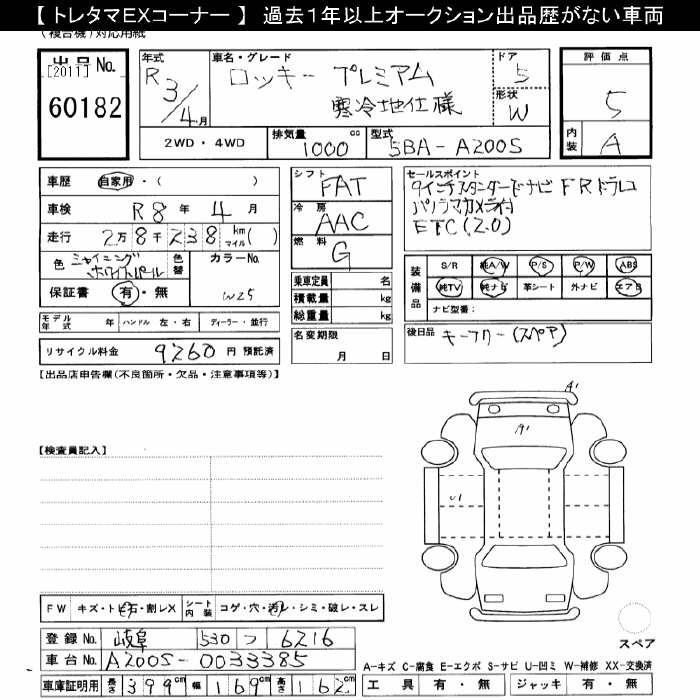 【 トレタマEXコーナー 】 過去1年以上オークション出品歴がない車両
(複合機)対応用紙
出品No.
[2011]
60182
年式 R3/4月
車名・グレード ロッキー プレミアム
寒冷地仕様
ドア 5
形状 W
評価点 5
内装 A
2WD・4WD 排気量 1000 cc 型式 5BA-A200S
車歴 自家用・( )
車検 R8年 4月
走行 2万8千238 km マイル( )
色 シャイニングホワイトパール 色替 カラーNo. W25
保証書 有・無
モデル年式 年 ハンドル 左・右 ディーラー・並行
リサイクル料金 9260 円 預託済
シフト FAT
冷房 AAC
燃料 G
乗車定員 名
積載量 kg
総重量 kg
名変期限 月 日
セールスポイント
9インチスタンダードナビ FRドラレコ
パノラマカメラ付
ETC(2.0)
装備品 S/R 純A/W P/S P/W ABS
純TV 純ナビ 革シート 外ナビ エアB
ナビ型番:
後日品 キーフリー(スペア)
【出品店申告欄(不良箇所・欠品・注意事項等)】
【検査員記入】
A'
A'
U1
FW キズ・トビ石・割レX シート内装 コゲ・穴・汚レ・シミ・破レ・スレ
登録No. 岐阜 530 つ 6216
車台No. A200S-0033385
車庫証明用 長さ 399cm 幅 169cm 高さ 162cm
スペア
A-キズ C-腐食 E-エクボ S-サビ U-凹ミ W-補修 XX-交換済
工具 有・無 ジャッキ 有・無